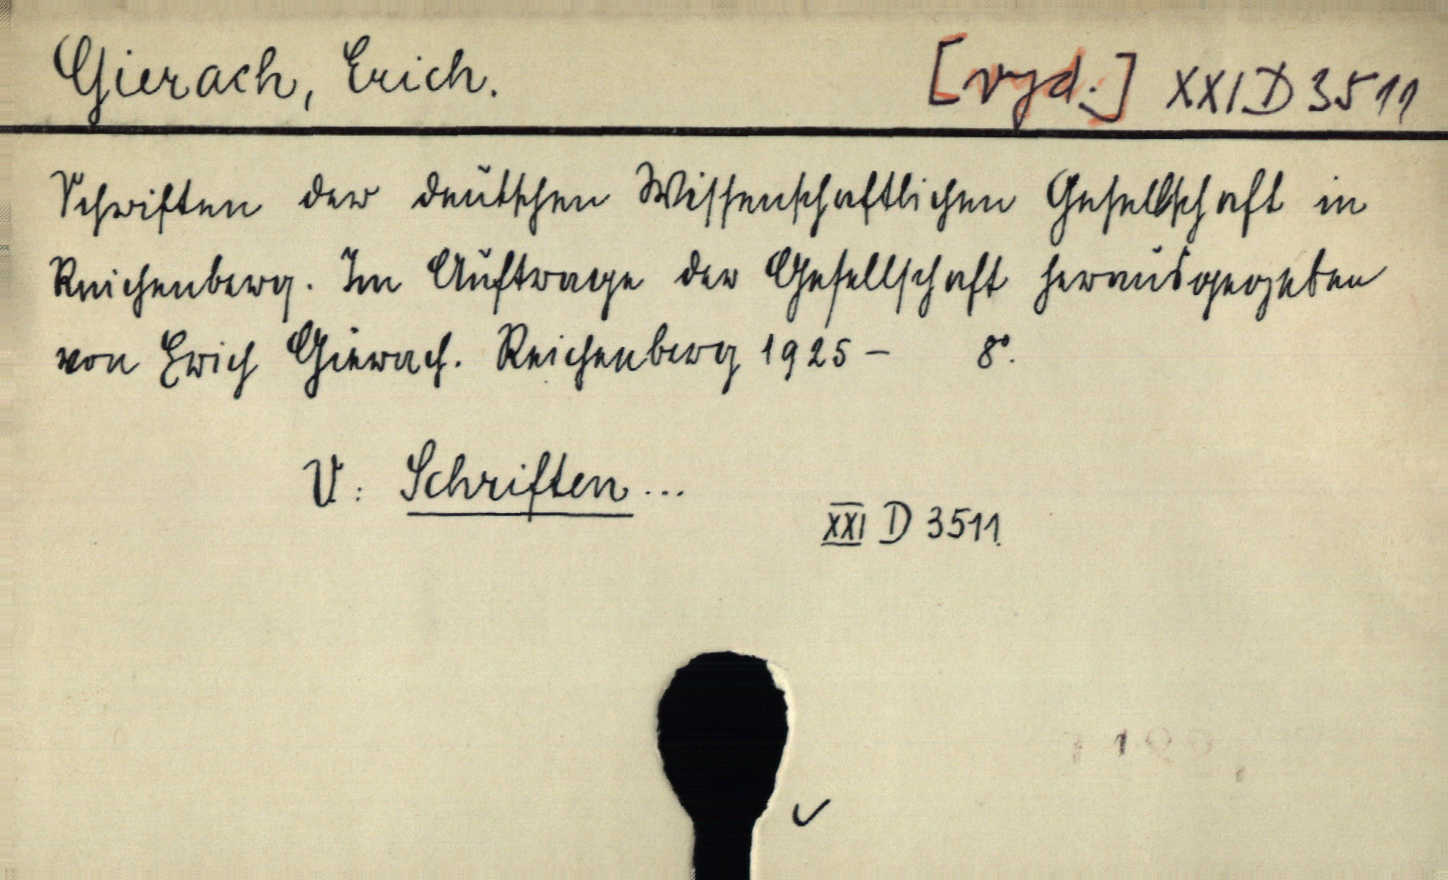 Gierach, Erich. [vyd.] XXI D 3511
Schriften der deutschen Wissenschaftlichen Gesellschaft in
Reichenberg. Im Auftrage der Gesellschaft herausgegeben
von Erich Gierach. Reichenberg 1925 – 8°.
V: Schriften...
XXI D 3511